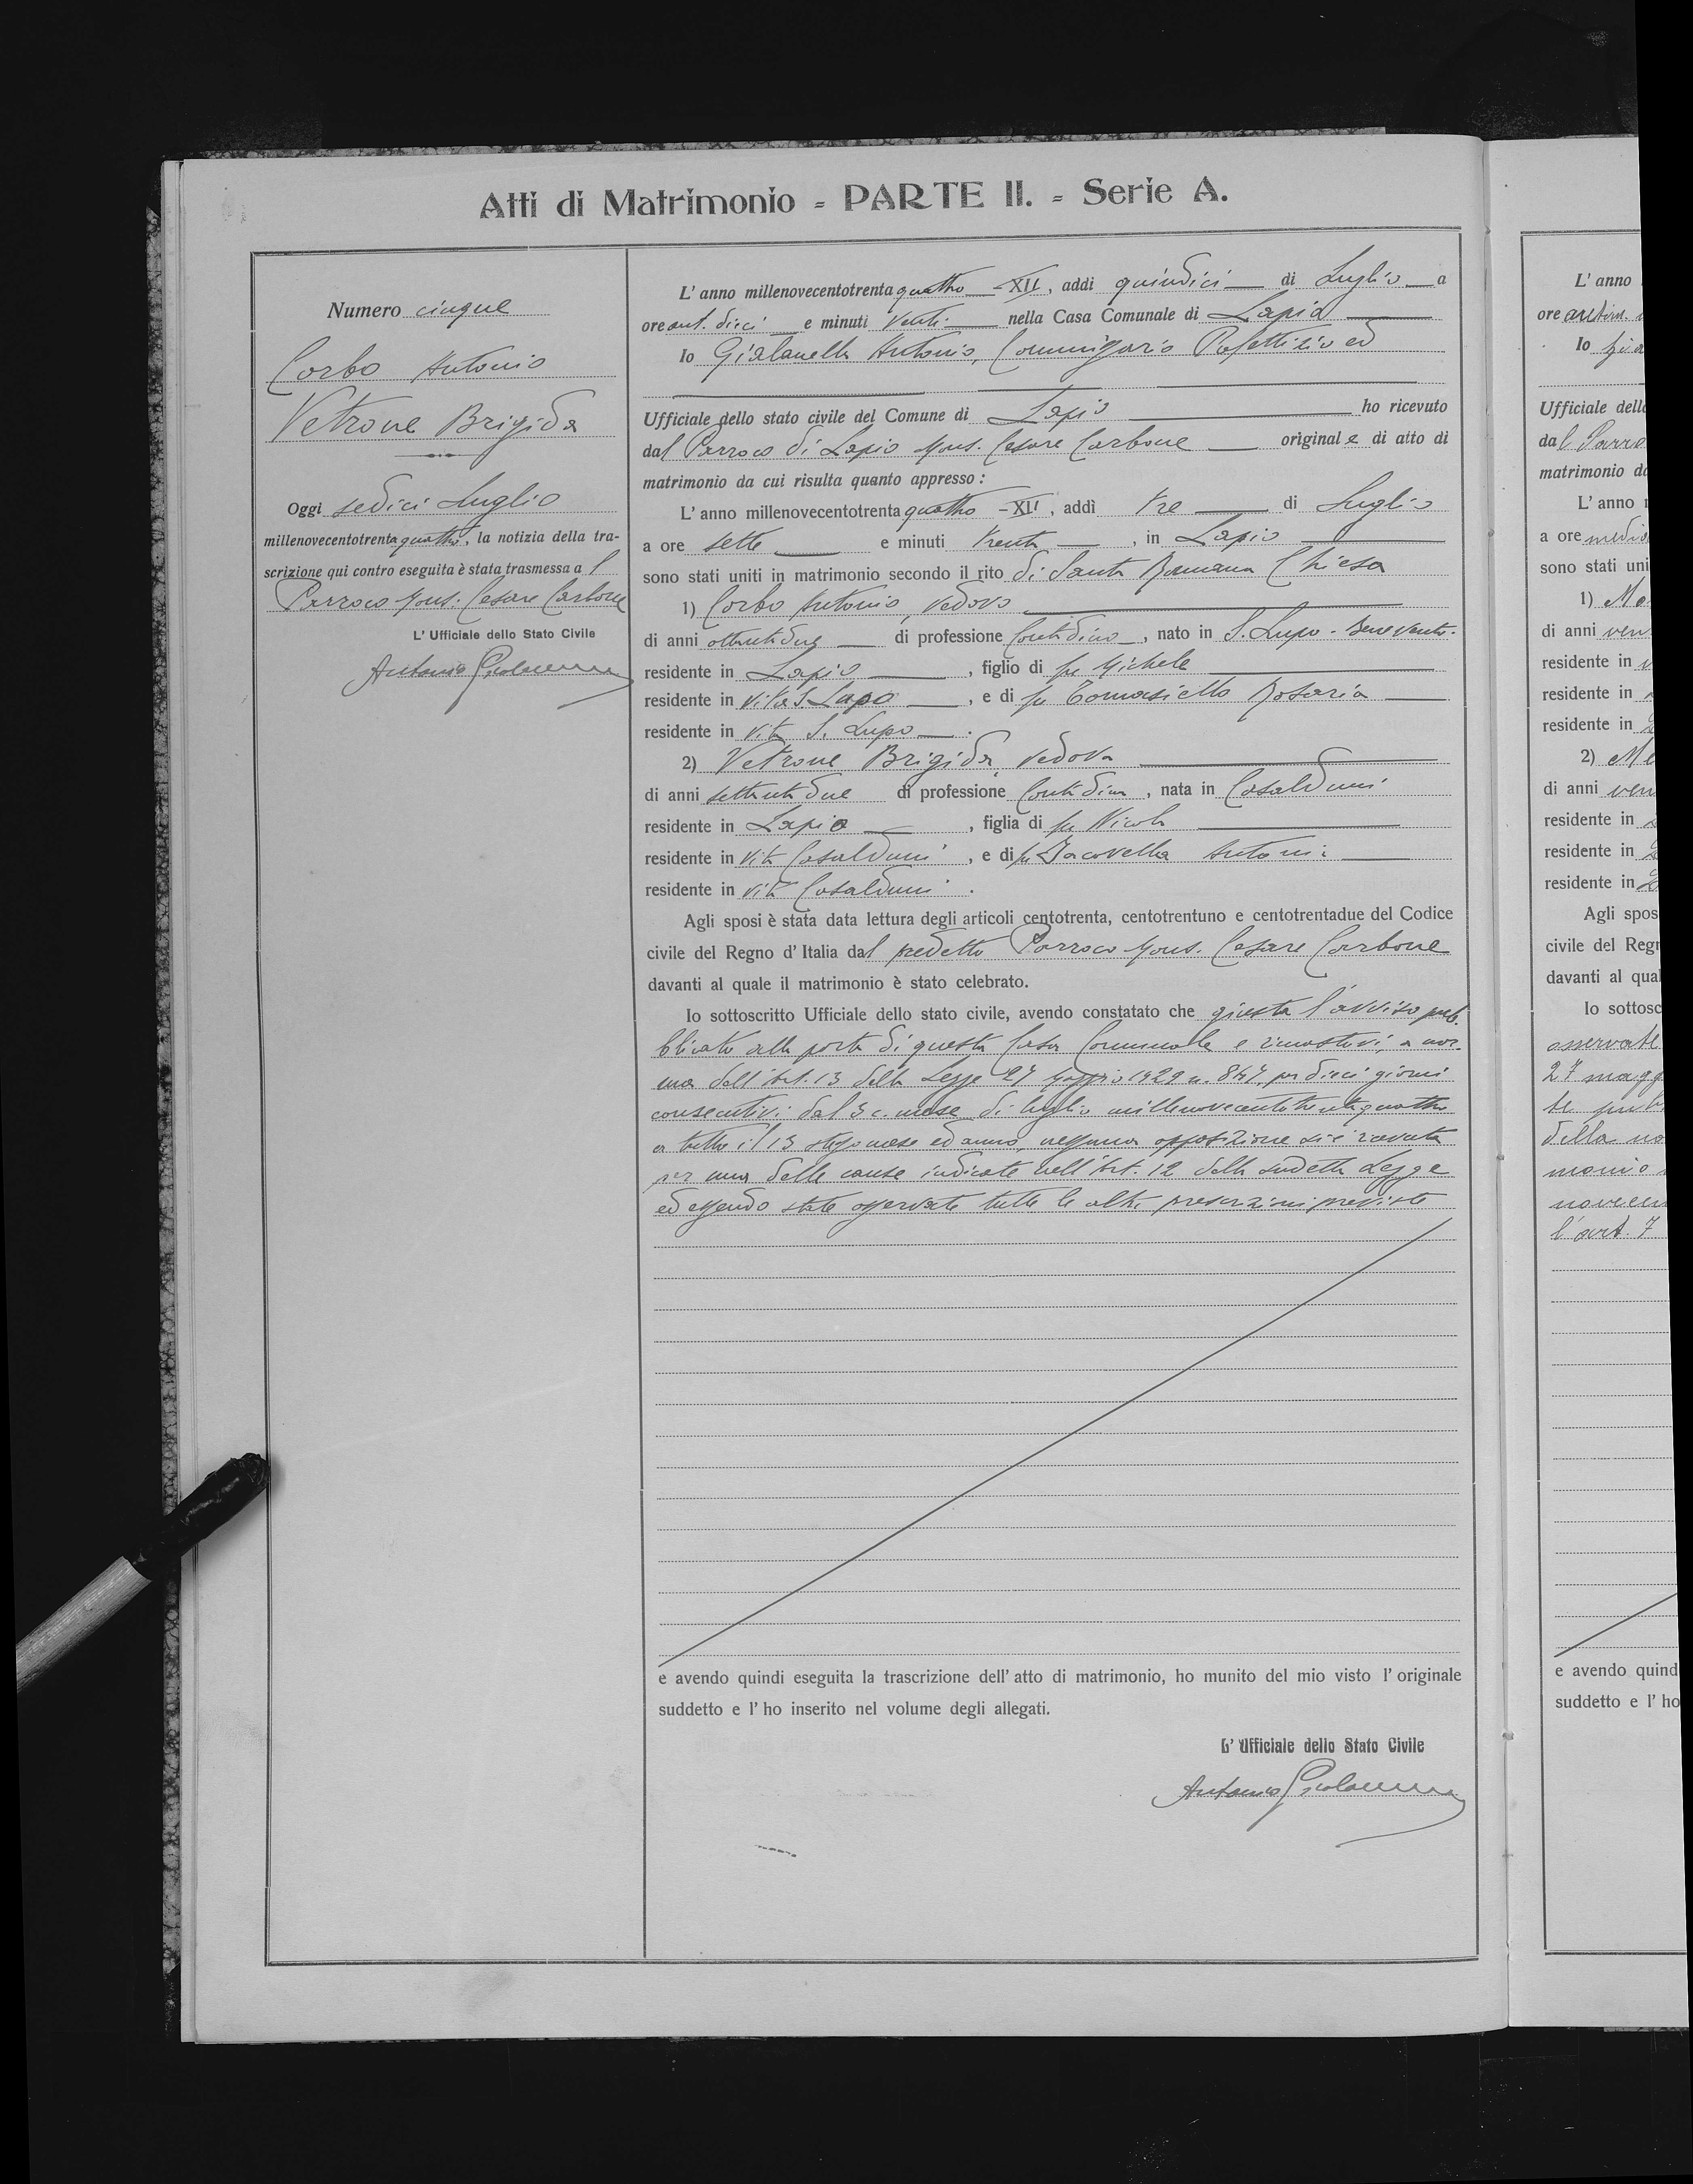 Atti di Matrimonio - PARTE II. - Serie A.
Numero cinque
Corbo Antonio
Vetrone Brigida
Oggi sedici Luglio
millenovecentotrentaquattro, la notizia della tra-
scrizione qui contro eseguita è stata trasmessa al
Parroco Mons. Cesare Carbone
L' Ufficiale dello Stato Civile
Antonio
L' anno millenovecentotrentaquattro - XII, addì quindici di Luglio a
ore ant. dieci e minuti venti nella Casa Comunale di Lapio
Io Gialanella Antonio, Commissario Prefettizio ed
Ufficiale dello stato civile del Comune di Lapio ho ricevuto
dal Parroco di Lapio Mons. Cesare Carbone originale di atto di
matrimonio da cui risulta quanto appresso :
L' anno millenovecentotrentaquattro - XII, addì tre di Luglio
a ore sette e minuti trenta , in Lapio
sono stati uniti in matrimonio secondo il rito di Santa Romana Chiesa
1) Corbo Antonio, vedovo
di anni ottantadue di professione Contadino, nato in S. Lupo - Benevento -
residente in Lapio , figlio di fu Michele
residente in vita S. Lupo , e di fu Tomasiello Rosaria
residente in vita S. Lupo .
2) Vetrone Brigida, vedova
di anni settantadue di professione Contadina , nata in Casalduni
residente in Lapio , figlia di fu Nicola
residente in vita Casalduni , e di fu Iacovella Antonia
residente in vita Casalduni .
Agli sposi è stata data lettura degli articoli centotrenta, centotrentuno e centotrentadue del Codice
civile del Regno d' Italia dal predetto Parroco Mons. Cesare Carbone
davanti al quale il matrimonio è stato celebrato.
Io sottoscritto Ufficiale dello stato civile, avendo constatato che giusta l'avviso pub-
blicato alla porta di questa Casa Comunale e rimastovi, a nor-
ma dell'Art. 13 della Legge 27 Maggio 1929 n. 847, per dieci giorni
consecutivi dal 3 c. mese di luglio millenovecentotrentaquattro
a tutto il 13 stesso mese ed anno, nessuna opposizione si è ricevuta
per una delle cause indicate nell'Art. 12 della sudetta Legge
ed essendo state osservate tutte le altre prescrizioni previste
e avendo quindi eseguita la trascrizione dell' atto di matrimonio, ho munito del mio visto l' originale
suddetto e l' ho inserito nel volume degli allegati.
L' Ufficiale dello Stato Civile
Antonio
L' anno
ore
Io
Ufficiale dello
dal Parro
matrimonio da
L' anno
a ore
sono stati uni
1)
di anni
residente in
residente in
residente in
2)
di anni
residente in
residente in
residente in
Agli spos
civile del Regn
davanti al qual
Io sottosc
osservate
27 magg
della no
monio
l'art. 7
e avendo quind
suddetto e l' ho